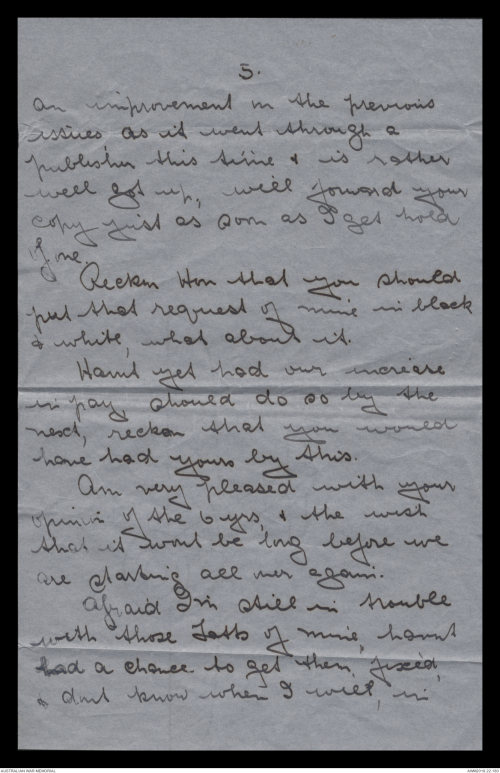 5.
an improvement on the previous
issues as it went through a
publisher this time & is rather
well got up, will forward your
copy just as soon as I get hold
of one.
Reckon Hon that you should
put that request of mine in black
& white, what about it.
Havnt yet had our increase
in pay, should do so by the
next, reckon that you would
have had yours by this.
Am very pleased with your
opinion of the 6 yrs, & the wish
that it wont be long before we
are starting all over again.
Afraid I'm still in trouble
with those Tatts of mine, havnt
had a chance to get them fixed,
& dont know when I will, in
AUSTRALIAN WAR MEMORIAL